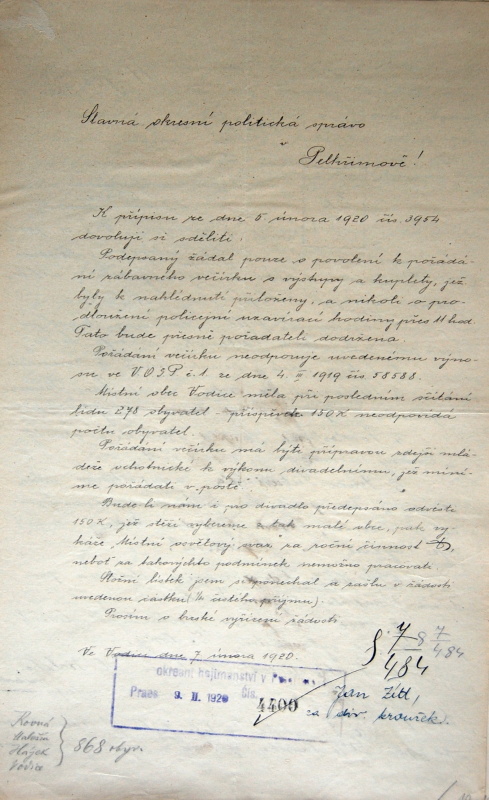 Slavná okresní politická správo
v
Pelhřimově!
K přípisu ze dne 5 února 1920 čís. 3954
dovoluji si sděliti:
Podepsaný žádal pouze o povolení k pořádá-
ní zábavného večírku s výstupy a kuplety, jež
byly k nahlédnutí přiloženy, a nikoli o pro-
dloužení policejní uzavírací hodiny přes 11 hod.
Tato bude přesně pořadateli dodržena.
Pořádání večírku neodporuje uvedenému výno-
su ve V.O.Z.P. č. 1 ze dne 4. II 1919 čís. 58588.
Místní obec Vodice měla při posledním sčítání
lidu 278 obyvatel - příspěvek 150 K neodpovídá
počtu obyvatel.
Pořádání večírku má býti přípravou zdejší mlá-
deže ochotnické k výkonu divadelnímu, jež míní-
me pořádati v postě.
Bude-li nám i pro divadlo předepsáno odvésti
150 K, jež stěží vybereme z tak malé obce, pak vy-
káže Místní osvětový svaz za roční činnost
neboť za takovýchto podmínek nemožno pracovati.
lístek jsem si ponechal a zašlu v žádosti
uvedenou částku ( čistého příjmu).
Prosím o brzké vyřízení žádosti.
Ve Vodici dne 7 února 1920.
§ 7/484
§ 7/484
okresní hejtmanství v
Praes 9. II. 1920 Čís. 4400
Jan Zítl,
za div. kroužek.
Rovná
Hájek
Vodice
868 obyv.